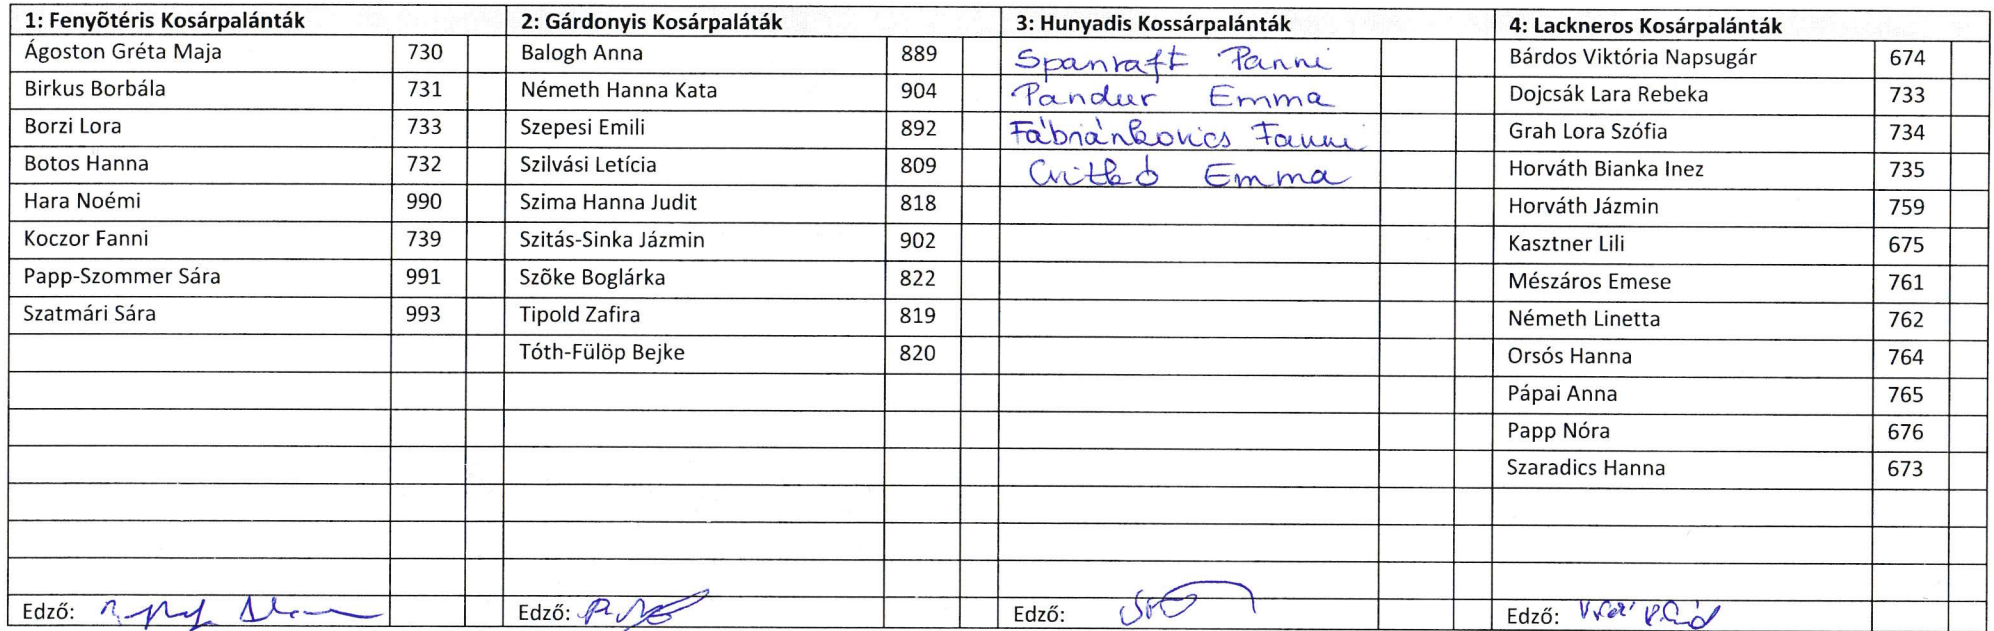 1: Fenyõtéris Kosárpalánták
Ágoston Gréta Maja 730
Birkus Borbála 731
Borzi Lora 733
Botos Hanna 732
Hara Noémi 990
Koczor Fanni 739
Papp-Szommer Sára 991
Szatmári Sára 993
Edző:
2: Gárdonyis Kosárpaláták
Balogh Anna 889
Németh Hanna Kata 904
Szepesi Emili 892
Szilvási Letícia 809
Szima Hanna Judit 818
Szitás-Sinka Jázmin 902
Szõke Boglárka 822
Tipold Zafira 819
Tóth-Fülöp Bejke 820
Edző:
3: Hunyadis Kossárpalánták
Spanraft Panni
Pandur Emma
Fábriánkovics Fanni
Csitkó Emma
Edző:
4: Lackneros Kosárpalánták
Bárdos Viktória Napsugár 674
Dojcsák Lara Rebeka 733
Grah Lora Szófia 734
Horváth Bianka Inez 735
Horváth Jázmin 759
Kasztner Lili 675
Mészáros Emese 761
Németh Linetta 762
Orsós Hanna 764
Pápai Anna 765
Papp Nóra 676
Szaradics Hanna 673
Edző: